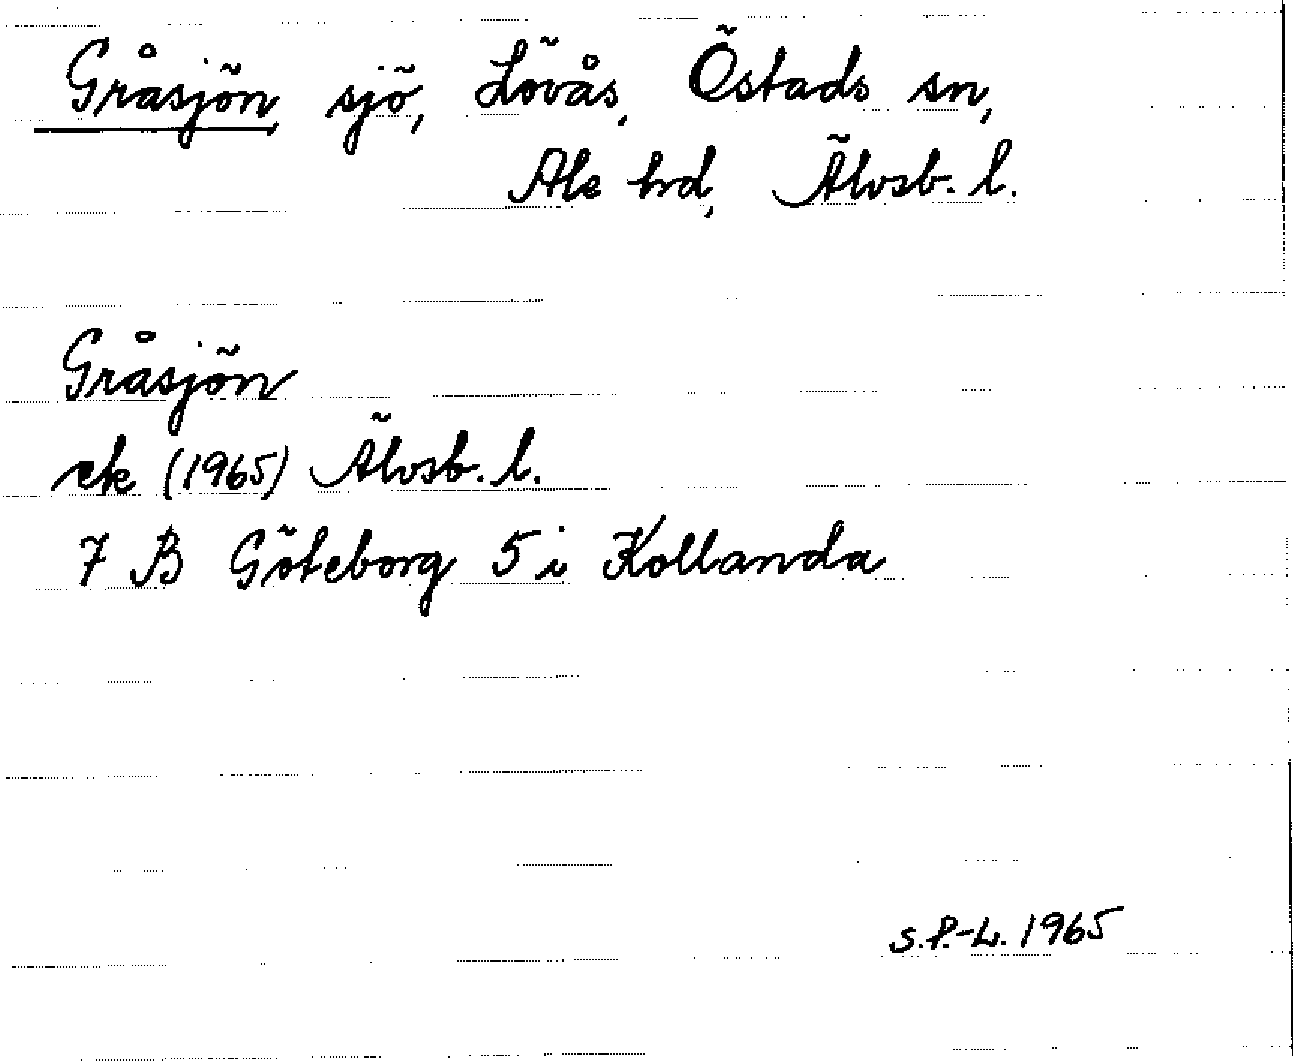 Gråsjön, sjö, Lövås, Östads sn,
Ale hd, Älvsb. l.
Gråsjön
ek (1965) Älvsb. l.
7 B Göteborg 5 i Kollanda
S.P.-L. 1965